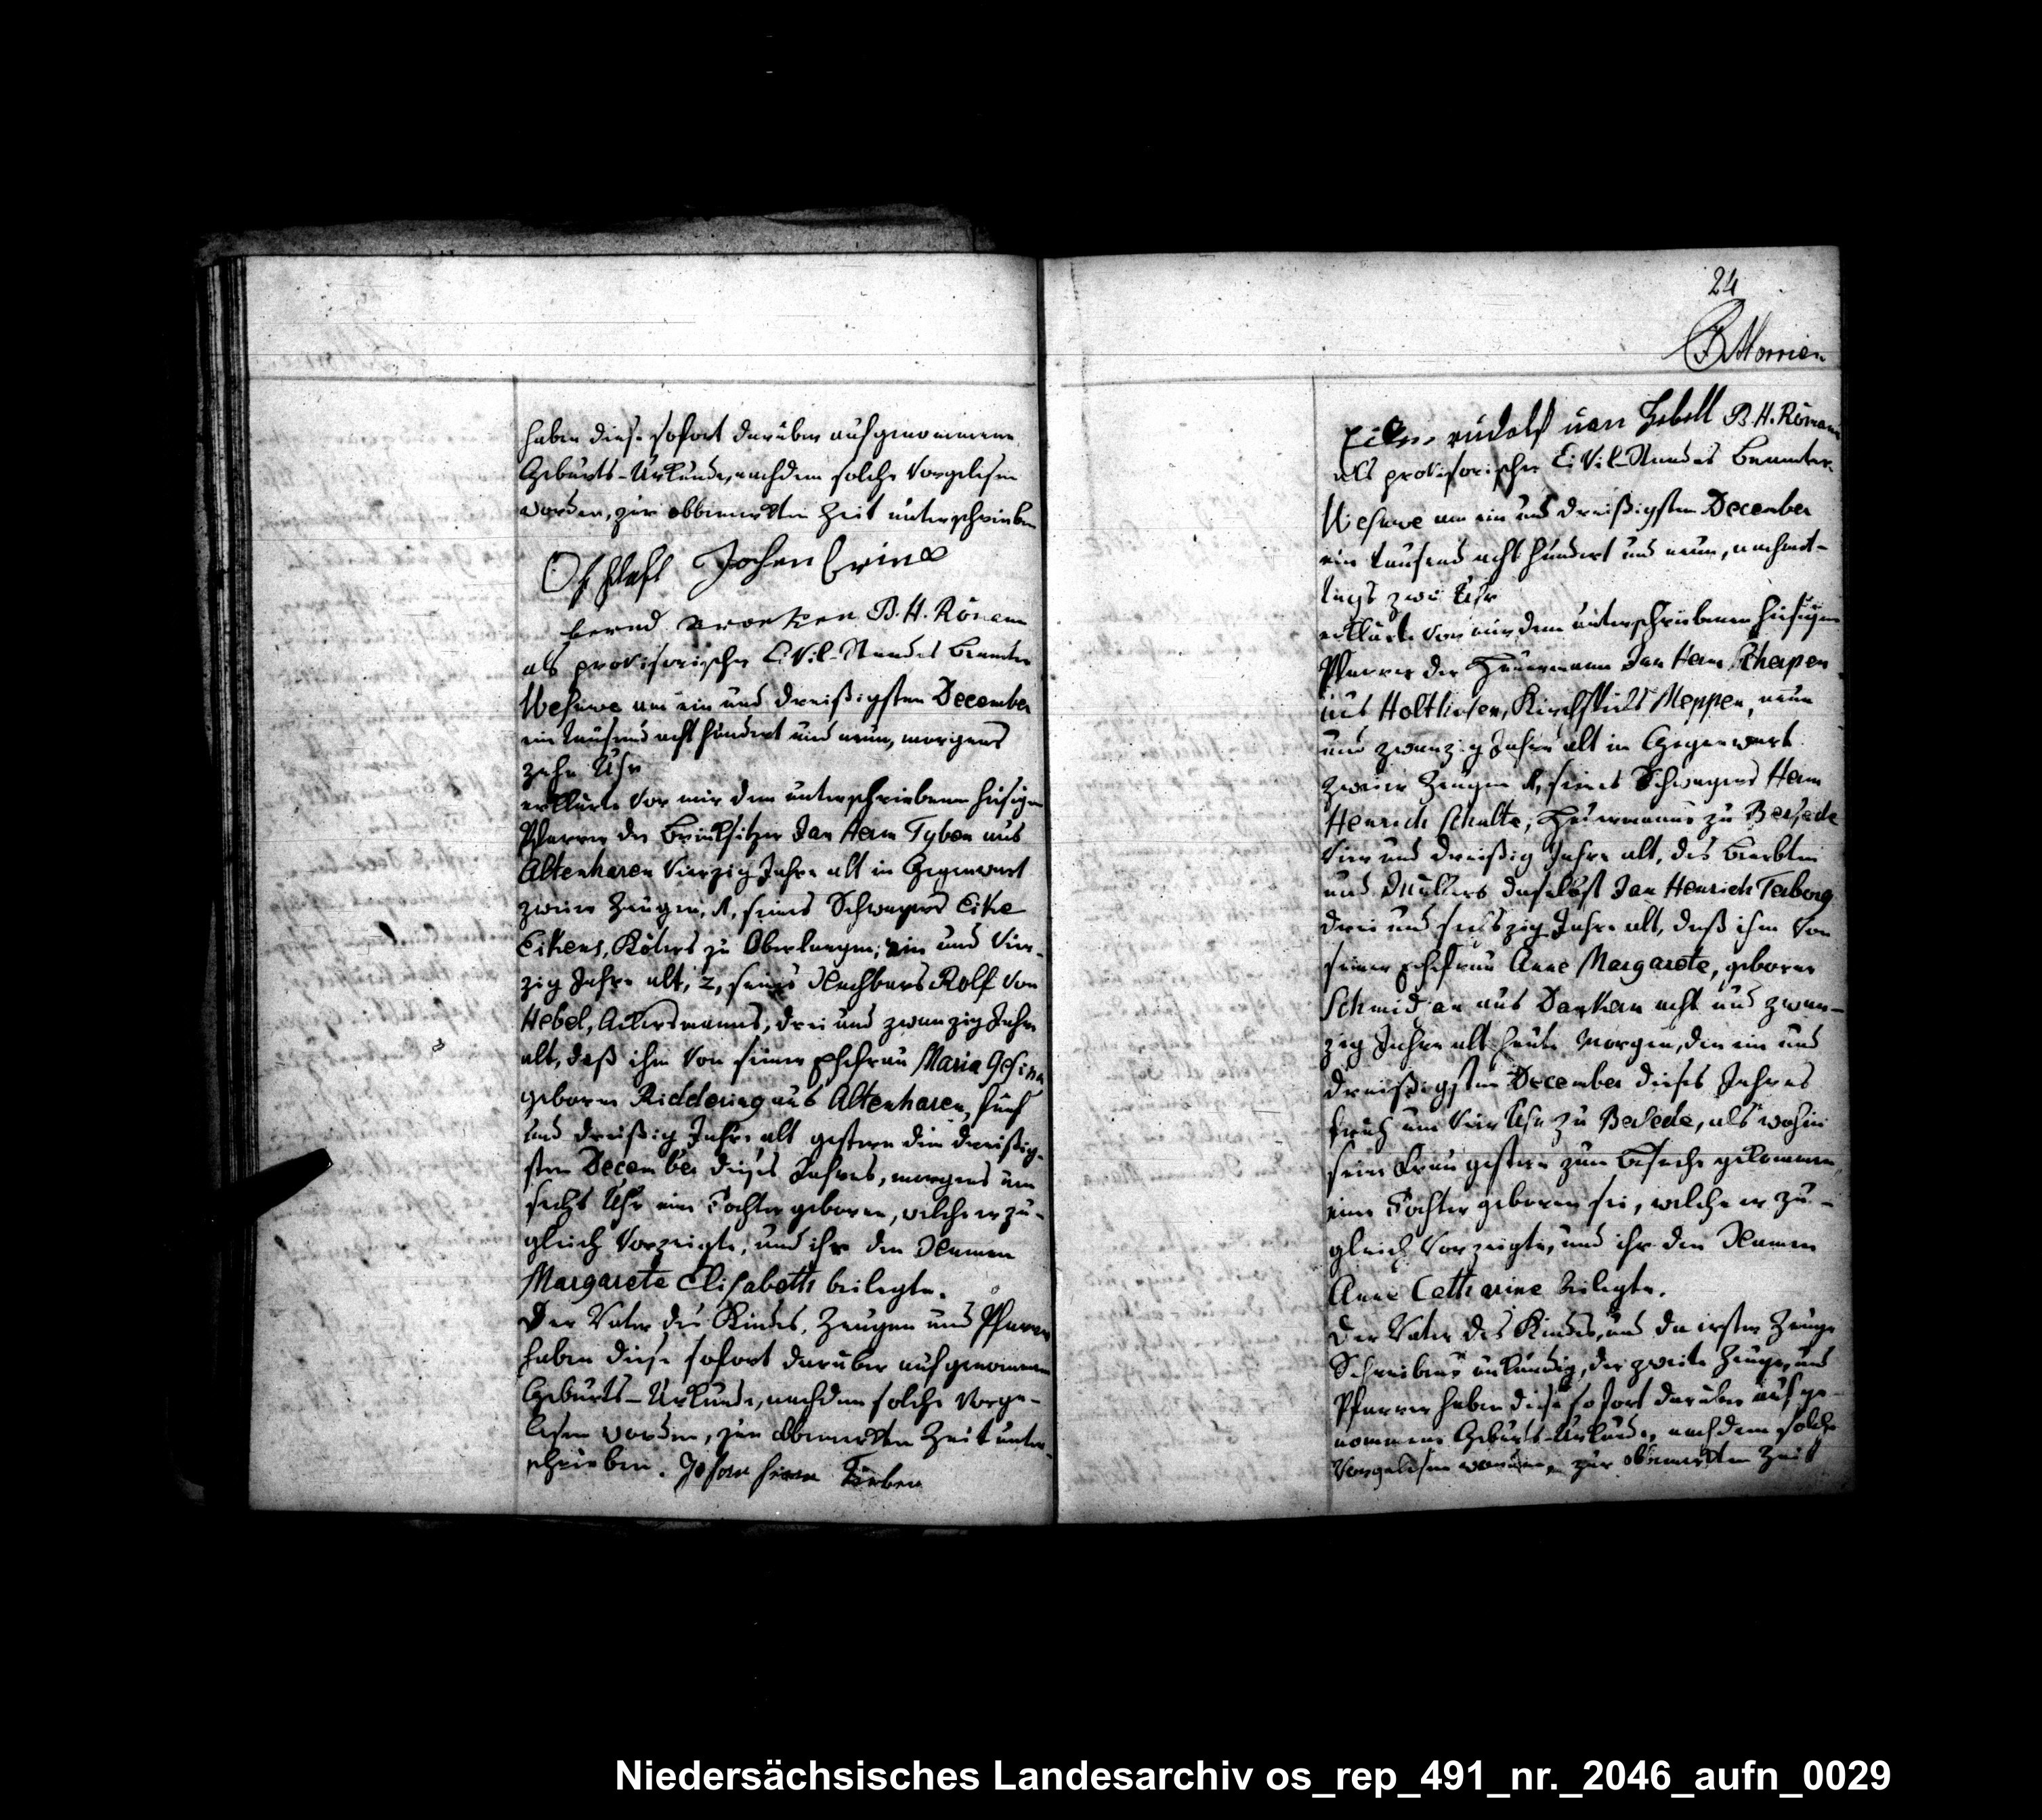 haben diese sofort darüber aufgenommene
Geburts-Urkunde, nachdem solche vorgelesen
worden, zur obbemerkten Zeit unterschrieben
Johan
bernd B. H. Rörman
als provisorischer Civil-Standes Beamter
Wesuwe am ein und dreißigsten December
ein tausend acht hundert und neun, morgens
zehn Uhr
erklärte vor mir dem unterschriebenen hiesigen
Pfarrer der Brinksitzer Jan Herm Tyben aus
Altenharen vierzig Jahre alt in Gegenwart
zweier Zeugen, 1, seines Schwagers Eike
Eikens, Köters zu Oberlangen, ein und vier-
zig Jahre alt, 2, seines Nachbars Rolf von
Hebel, Ackersmanns, drei und zwanzig Jahre
alt, daß ihm von seiner Ehefrau Maria Gesina
geboren Riddering aus Altenharen, fünf
und dreißig Jahre alt gestern den dreißig-
sten December dieses Jahres, morgens um
sechs Uhr eine Tochter geboren, welche er zu-
gleich vorzeigte, und ihr den Namen
Margarete Elisabeth beilegte.
Der Vater des Kindes, Zeugen und Pfarrer
haben diese sofort darüber aufgenommene
Geburts-Urkunde, nachdem solche vorge-
lesen worden, zur obbemerkten Zeit unter-
schrieben. Johan herm Tieben
24
Morrien
rudolf van Hebell B. H. Rörman
als provisorischer Civil-Standes Beamter.
Wesuwe am ein und dreißigsten December
ein tausend acht hundert und neun, nachmit-
tags zwei Uhr
erklärte vor mir dem unterschriebenen hiesigen
Pfarrer der Heuermann Jan Herm Schepen
aus Holthusen, Kirchspiels Meppen, neun
und zwanzig Jahre alt in Gegenwart
zweier Zeugen 1, seines Schwagers Herm
Henrich Schulte, Heuermanns zu Versede
vier und dreißig Jahre alt, des Beerbten
und Müllers daselbst Jan Henrich Terborg
drei und sechszig Jahre alt, daß ihm von
seiner Ehefrau Anne Margarete, geboren
aus Dankern acht und zwan-
zig Jahre alt heute Morgen, den ein und
dreißigsten December dieses Jahres
früh um vier Uhr zu Versede, als wohin
seine Frau gestern zum Besuche gekommen,
eine Tochter geboren sei, welche er zu-
gleich vorzeigte, und ihr den Namen
Anne Catharine beilegte.
Der Vater des Kindes, und der erster Zeuge
Schreibens unkundig, der zweite Zeuge, und
Pfarrer haben diese sofort darüber aufge-
nommene Geburts-Urkunde, nachdem solche
vorgelesen worden, zur obbemerkten Zeit
Niedersächsisches Landesarchiv os_rep_491_nr._2046_aufn_0029